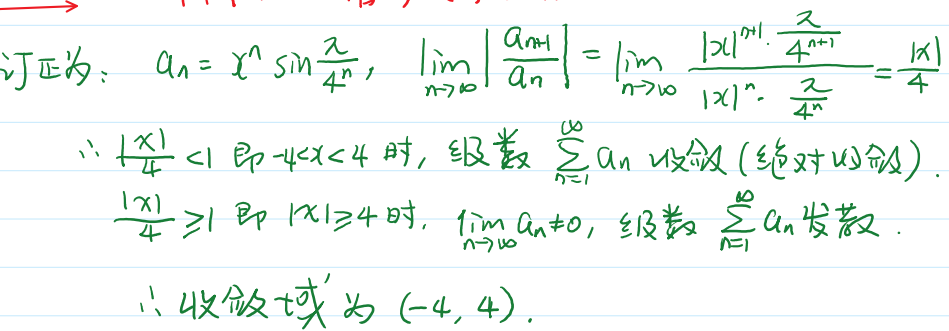 订正为: aₙ = xⁿ sin π/4ⁿ, lim n→∞ |aₙ₊₁/aₙ| = lim n→∞ (|x|ⁿ⁺¹ · π/4ⁿ⁺¹)/(|x|ⁿ · π/4ⁿ) = |x|/4
∴ |x|/4 <1 即 -4<x<4 时, 级数 ∑ n=1 ∞ aₙ 收敛 (绝对收敛).
|x|/4 ≥1 即 |x|≥4 时, lim n→∞ aₙ≠0, 级数 ∑ n=1 ∞ aₙ 发散.
∴ 收敛域为 (-4, 4).